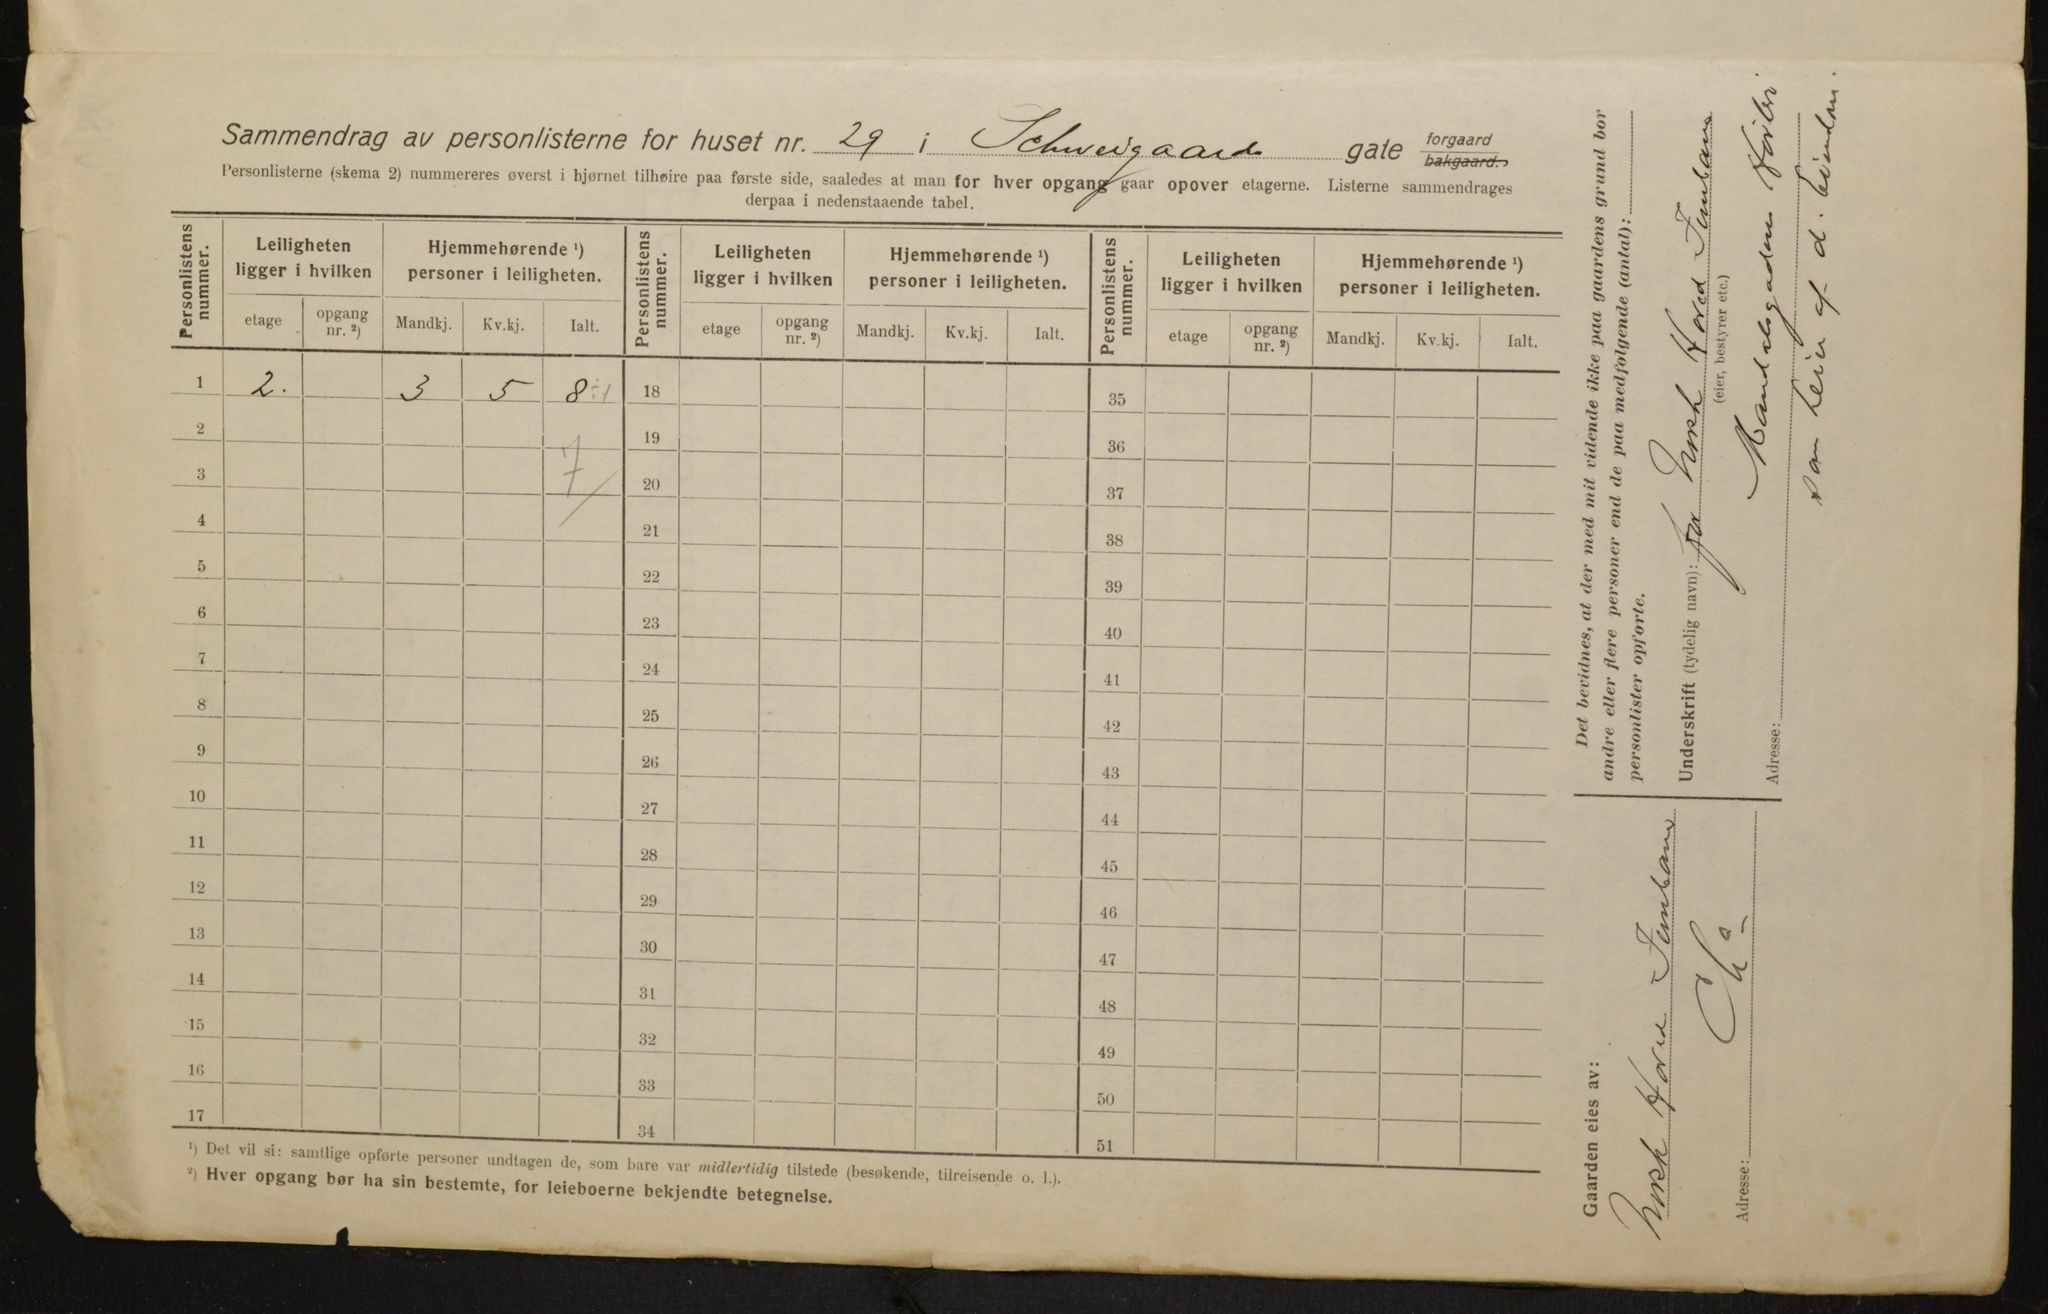 Sammendrag av personlisterne for huset nr. 29 i Schweigaards gate forgaard bakgaard.
Personlisterne (skema 2) nummereres øverst i hjørnet tilhøire paa første side, saaledes at man for hver opgang gaar opover etagerne. Listerne sammendrages
derpaa i nedenstaaende tabel.
Personlistens nummer. Leiligheten ligger i hvilken Hjemmehørende ¹) personer i leiligheten. Personlistens nummer. Leiligheten ligger i hvilken Hjemmehørende ¹) personer i leiligheten. Personlistens nummer. Leiligheten ligger i hvilken Hjemmehørende ¹) personer i leiligheten.
etage opgang nr. ²) Mandkj. Kv.kj. Ialt. etage opgang nr. ²) Mandkj. Kv.kj. Ialt. etage opgang nr. ²) Mandkj. Kv.kj. Ialt.
1 2. 3 5 8 ÷1 18 35
2 19 36
3 7 20 37
4 21 38
5 22 39
6 23 40
7 24 41
8 25 42
9 26 43
10 27 44
11 28 45
12 29 46
13 30 47
14 31 48
15 32 49
16 33 50
17 34 51
¹) Det vil si: samtlige opførte personer undtagen de, som bare var midlertidig tilstede (besøkende, tilreisende o. l.).
²) Hver opgang bør ha sin bestemte, for leieboerne bekjendte betegnelse.
Det bevidnes, at der med mit vidende ikke paa gaardens grund bor
andre eller flere personer end de paa medfølgende (antal):
personlister opførte.
Underskrift (tydelig navn): for Norsk Hoved Jernbane
(eier, bestyrer etc.)
Adresse:
som leier af d. eiendom.
Gaarden eies av:
Norsk Hoved Jernbane
Adresse: Chr a